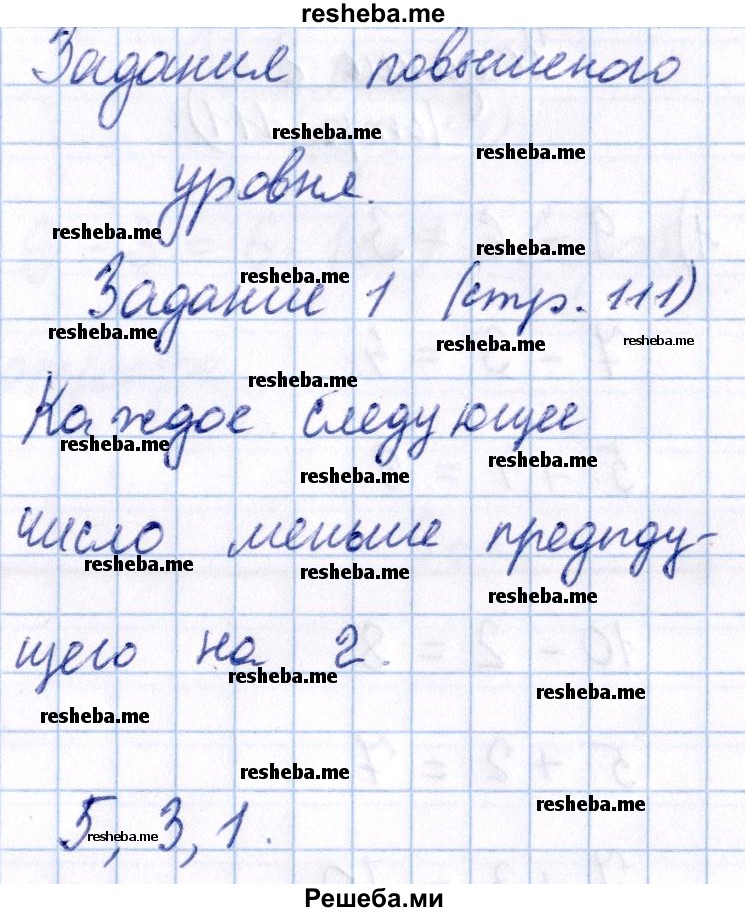 resheba.me
Задания повышеного
resheba.me
resheba.me
уровня.
resheba.me
resheba.me
resheba.me
Задание 1 (стр. 111)
resheba.me
resheba.me
resheba.me
resheba.me
Каждое следующее
resheba.me
resheba.me
resheba.me
число меньше предыду-
resheba.me
resheba.me
resheba.me
щего на 2.
resheba.me
resheba.me
resheba.me
resheba.me
resheba.me
5, 3, 1.
resheba.me
Решеба.ми